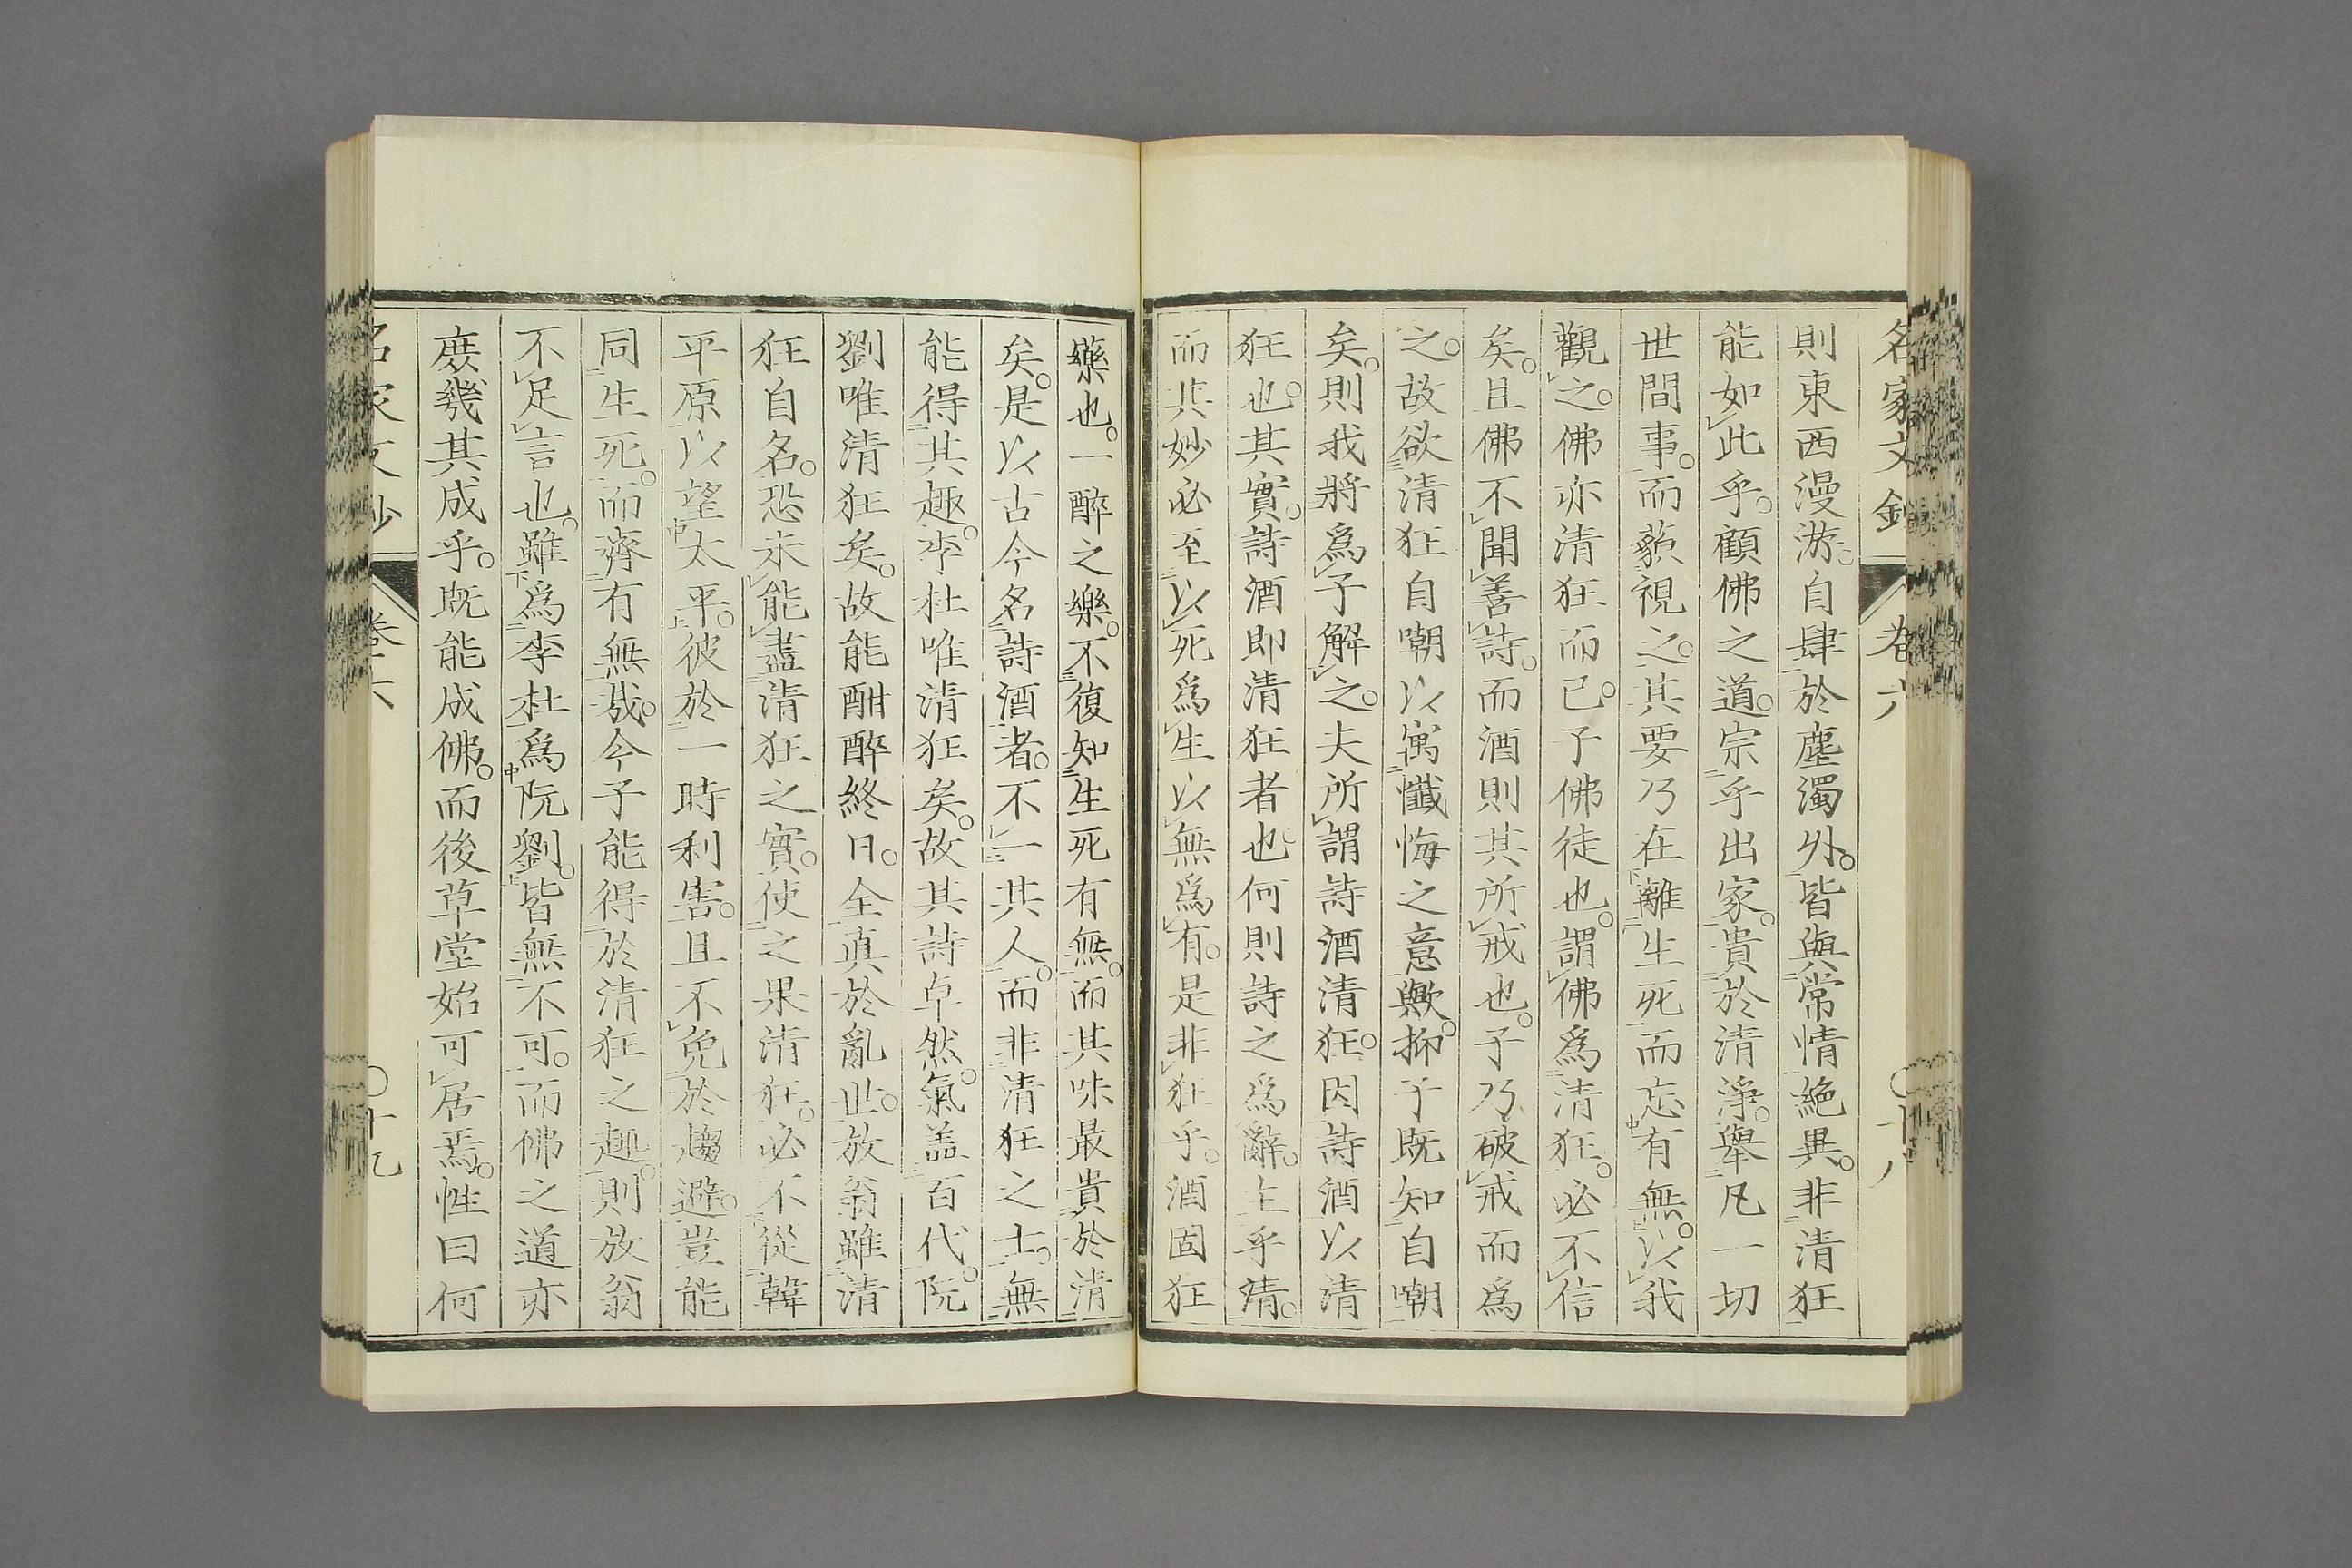 名家文鈔 卷六 〇十八
則東西漫游。自肆於塵濁外。皆與常情絶異。非清狂
能如此乎。顧佛之道。宗乎出家。貴於清淨。舉凡一切
世間事。而藐視之。其要乃在離生死而忘有無。以我
觀之。佛亦清狂而已。予佛徒也。謂佛爲清狂。必不信
矣。且佛不聞善詩。而酒則其所戒也。子乃破戒而爲
之。故欲清狂自嘲以寓懺悔之意歟。抑子既知自嘲
矣。則我將爲子解之。夫所謂詩酒清狂。因詩酒以清
狂也。其實。詩酒即清狂者也。何則詩之爲辭。主乎情。
而其妙必至以死爲生以無爲有。是非狂乎。酒固狂
藥也。一醉之樂。不復知生死有無。而其味最貴於清
矣。是以古今名詩酒者。不一其人。而非清狂之士。無
能得其趣。李杜唯清狂矣。故其詩卓然。氣盖百代。阮
劉唯清狂矣。故能酣醉終日。全眞於亂世。放翁雖清
狂自名。恐未能盡清狂之實。使之果清狂。必不從韓
平原以望太平。彼於一時利害。且不免於趨避。豈能
同生死。而齊有無哉。今子能得於清狂之趣。則放翁
不足言也。雖爲李杜爲阮劉。皆無不可。而佛之道亦
庶幾其成乎。既能成佛。而後草堂始可居焉。性曰何
名家文鈔 卷六 〇十九